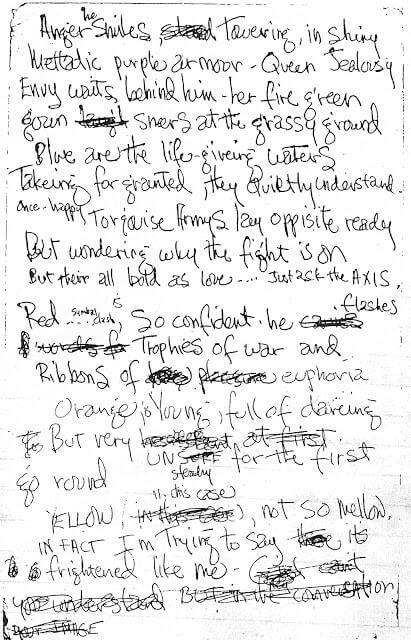 Anger he Smiles, Towering, in shiny
Mettalic purple armoor - Queen Jealousy
Envy waits behind him - her fire green
gown sneers at the grassy ground
Blue are the life-giveing waters
Takeing for granted, they Quietly understand
once-happy Torquise Armys lay oppisite ready
But wondering why the fight is on
But their all bold as love.... Just ask the AXIS.
Red symbol clash is, So confident. he flashes
Trophies of war and
Ribbons of euphoria
Orange is Young, full of dareing
But very at first
UNSteady for the first
go round
YELLOW, in this case, not so Mellow.
IN FACT I'm Trying to say its
frightened like me -
you understand But in the conversation
your IMAGE